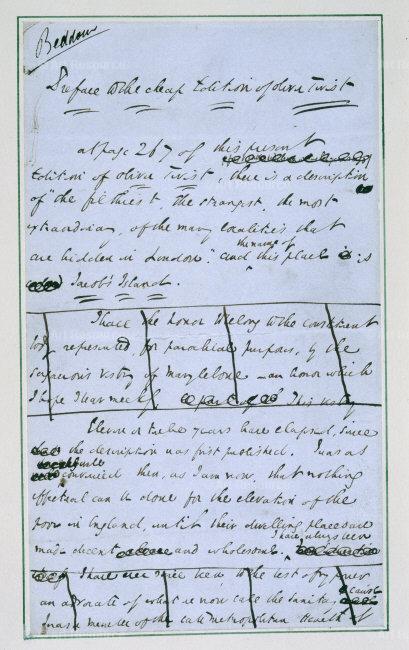 Beddow
Preface to the cheap Edition of Oliver Twist
at page 267 of this present
Edition of Oliver Twist, there is a description
of "the filthiest, the strangest, the most
extraordinary, of the many localities that
the name of
are hidden in London." and this place is
Jacob's Island.
I have the honor to belong to the constituent
body represented for parochial purposes, by the
vestry of Marylebone — an honor which
I hope I have This vestry
Eleven or twelve years have elapsed, since
the description was first published. I was as
convinced then, as I am now, that nothing
effectual can be done for the elevation of the
poor in England, until their dwelling places are
I have always been
made decent and wholesome.
I have ever since been to the best of my power
cause
an advocate of what we now call the sanitary
and as a member of the late metropolitan Health of